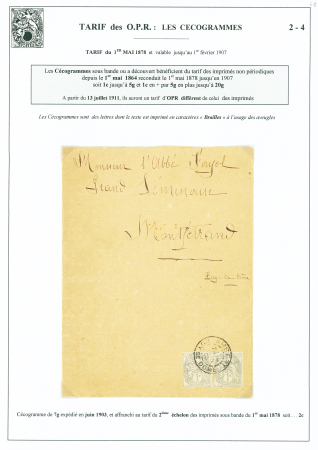 TARIF des O.P.R. : LES CECOGRAMMES
2 - 4
TARIF du 1ER MAI 1878 et valable jusqu'au 1er février 1907
Les Cécogrammes sous bande ou a découvert bénéficient du tarif des imprimés non périodiques
depuis le 1er mai 1864 reconduit le 1er mai 1878 jusqu'en 1907
soit 1c jusqu'à 5g et 1c en + par 5g en plus jusqu'à 20g
A partir du 13 juillet 1911, ils auront un tarif d'OPR différent de celui des imprimés
Les Cécogrammes sont des lettres dont le texte est imprimé en caractères « Brailles » à l'usage des aveugles
Monsieur l'Abbé
Grand Séminaire
Montferrand
Puy-de-Dôme
Cécogramme de 7g expédié en juin 1903, et affranchi au tarif du 2ème échelon des imprimés sous bande du 1er mai 1878 soit… 2c